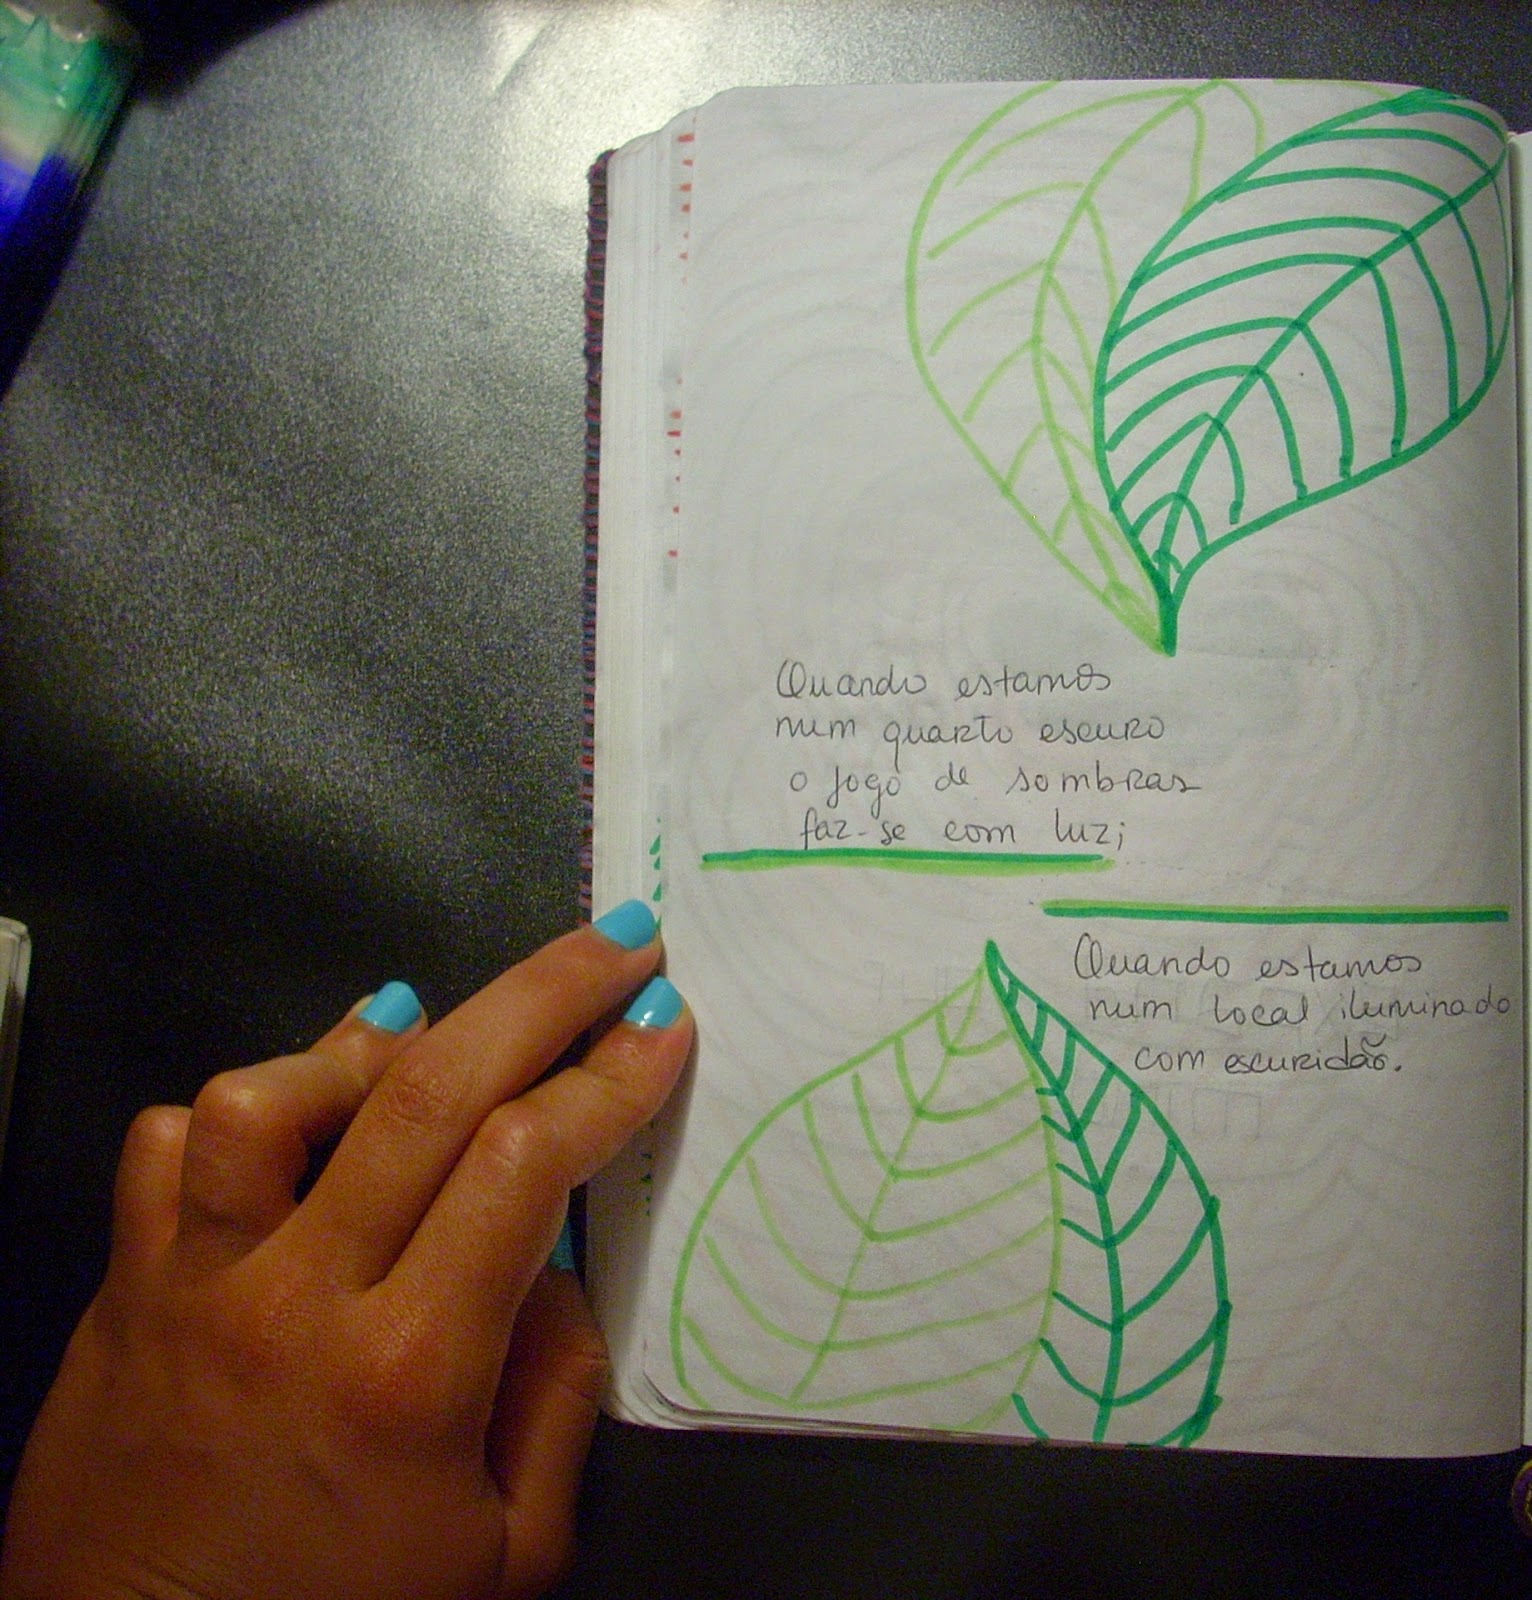 Quando estamos
num quarto escuro
o jogo de sombras
faz-se com luz;
Quando estamos
num local iluminado
com escuridão.